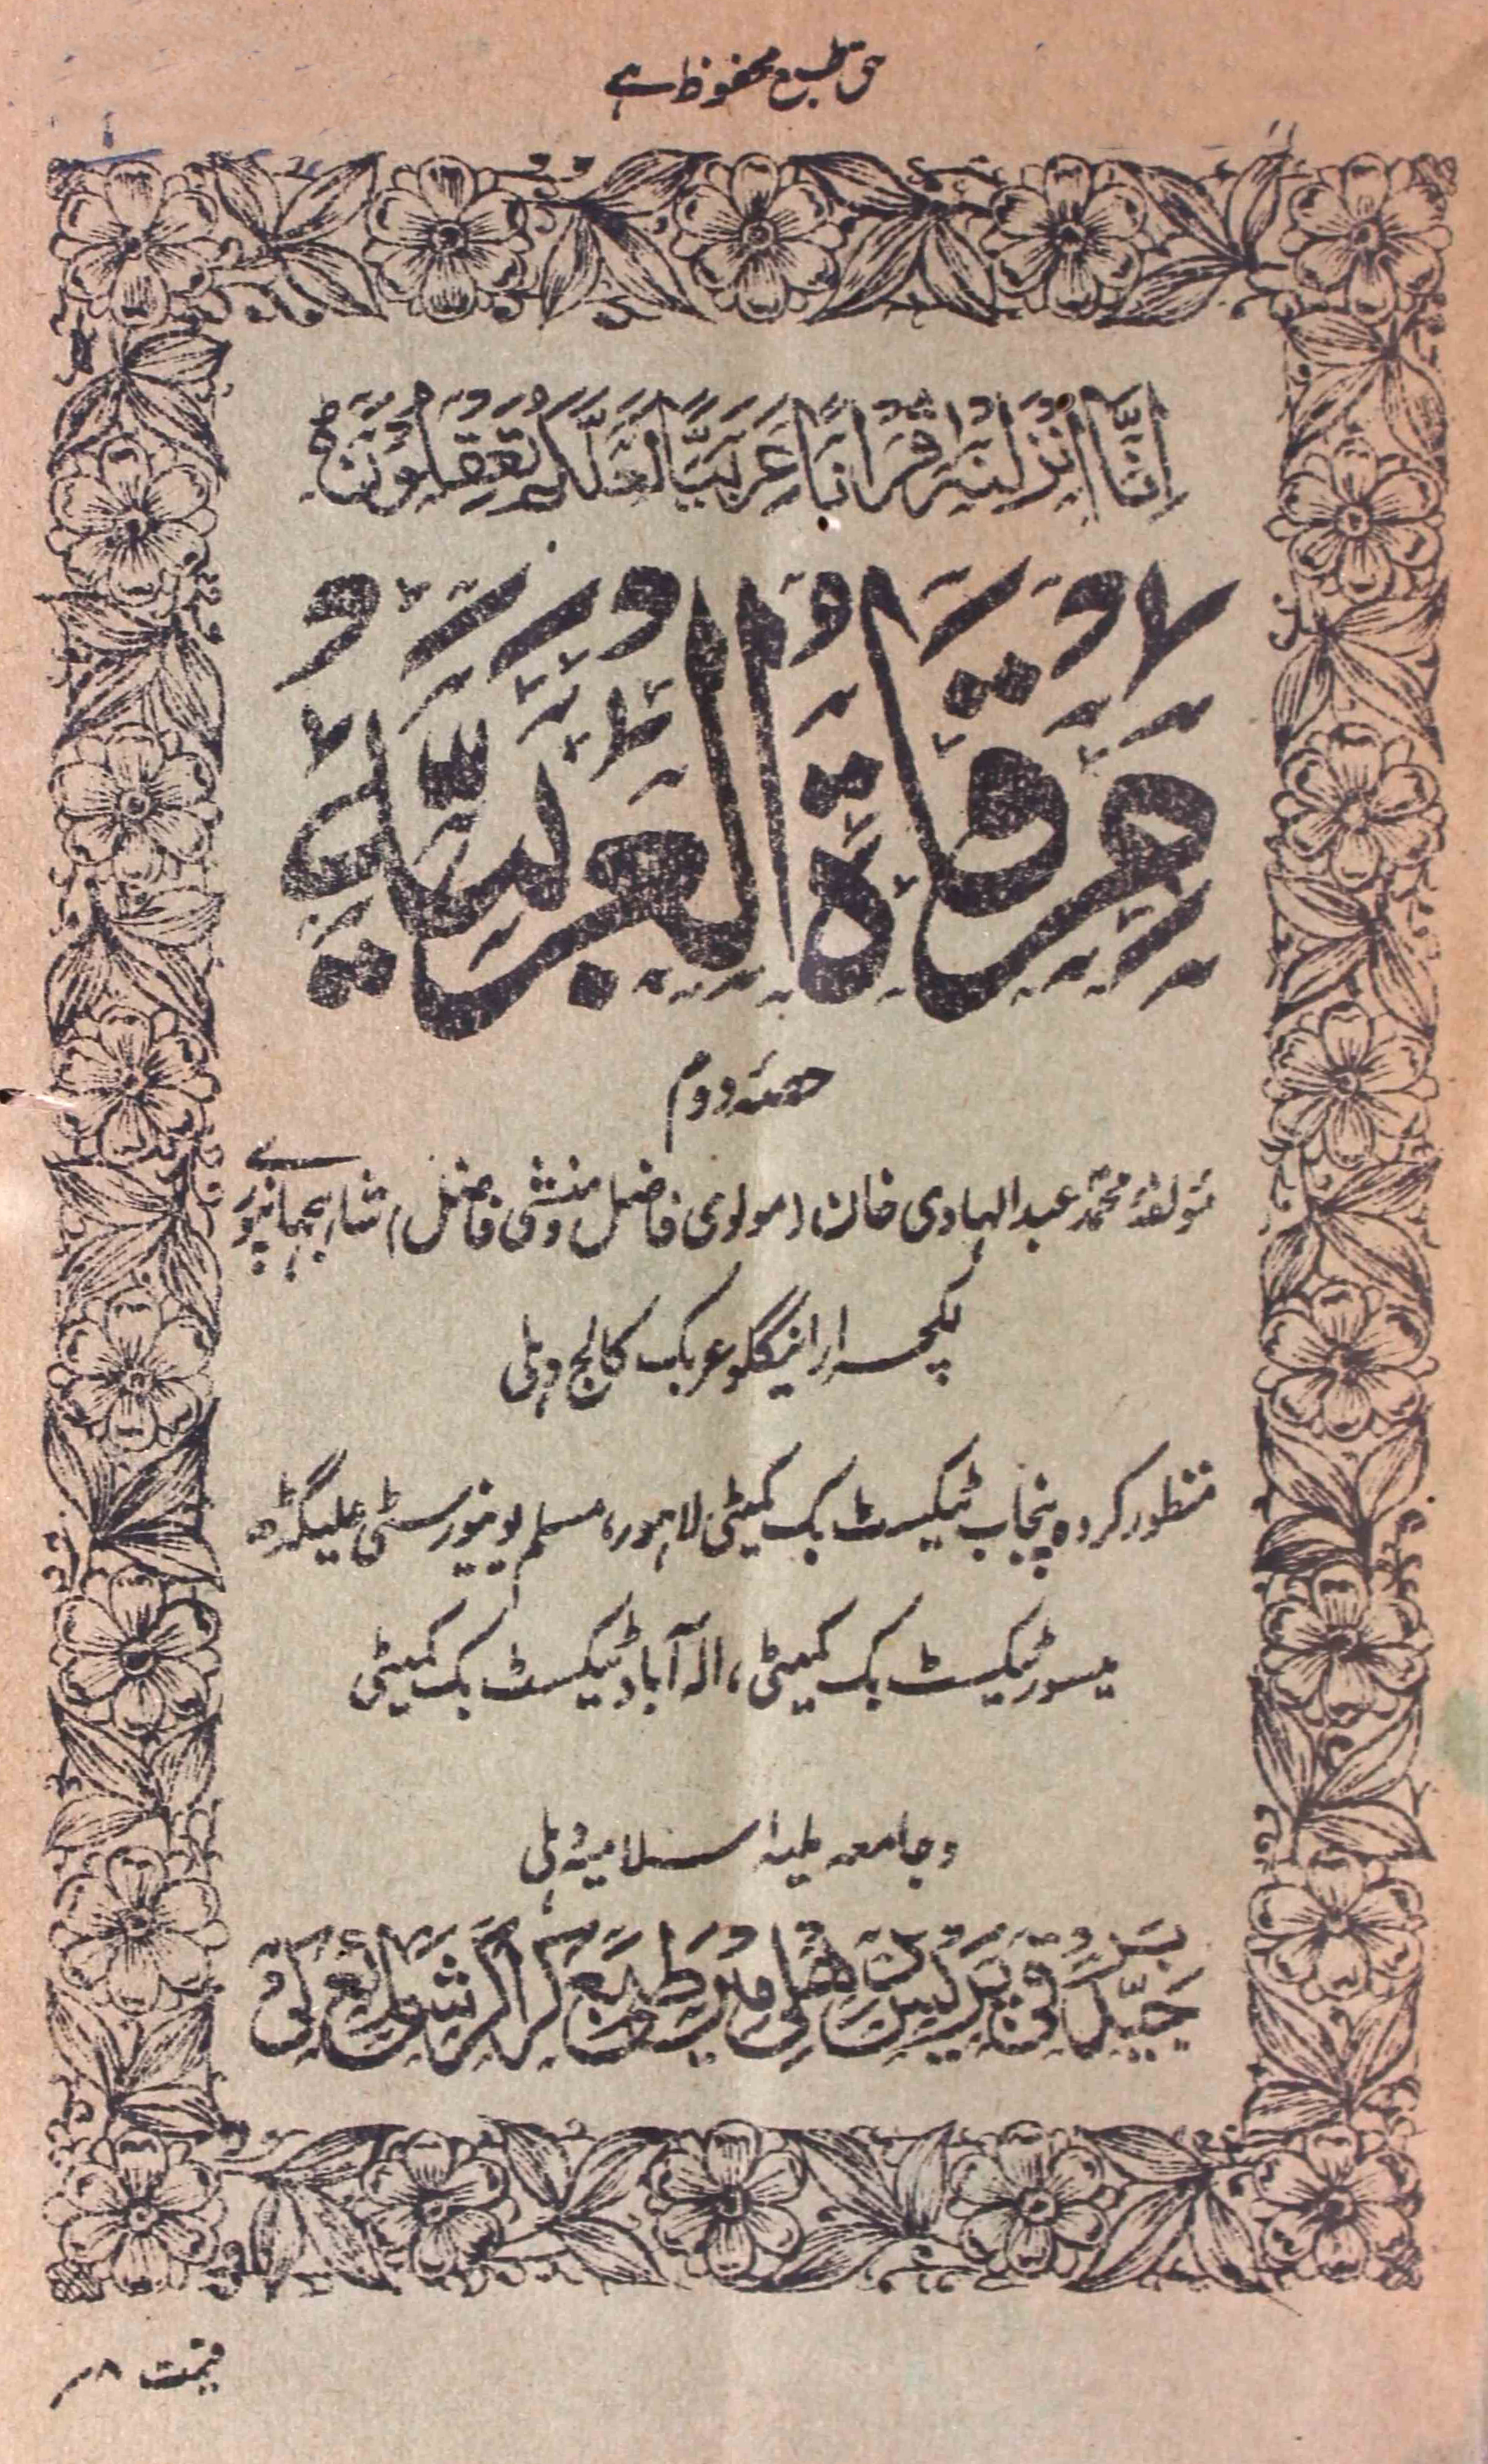 حق طبع محفوظ ہے
اِنَّا اَنْزَلْنٰهُ قُرْاٰنًا عَرَبِيًّا لَّعَلَّكُمْ تَعْقِلُوْنَ
مِرْقَاةُ الْعَرَبِيَّةِ
حصۂ دوم
مؤلفۂ محمد عبدالہادی خان (مولوی فاضل و منشی فاضل) شاہجہانپوری
لکچرار اینگلو عربک کالج دہلی
منظور کردہ پنجاب ٹیکسٹ بک کمیٹی لاہور، مسلم یونیورسٹی علیگڑھ
میسور ٹیکسٹ بک کمیٹی، الہ آباد ٹیکسٹ بک کمیٹی
و جامعہ ملیہ اسلامیہ دہلی
جید برقی پریس دہلی میں طبع کراکر شائع کی
قیمت ۸؍